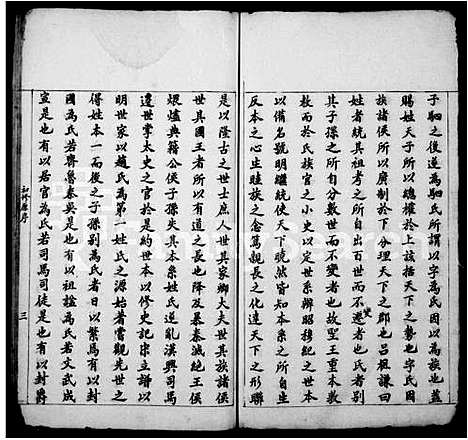 子駟之後連為駟氏所謂以字為氏因以為族也蓋
賜姓天子所以總權於上該括天下之勢也字氏因
族諸侯所以廣制於下分理天下之郡也呂祖謙曰
姓者統其祖考之所自出百世而不變者也氏者別
其子孫之所自分數世而不遷者也故聖王重本根之
教而於氏族官之小史以定世系辨昭穆紀之世本
以備名號明繼統使天下曉然皆知本系之所自生
反本之心生睦族之念篤親長之化達天下之形聯
是以隆古之世士庶人世其家卿大夫世其族諸侯
世其國王者所以有道之長也降及暴秦滅絕王侯
煨爐典籍公侯子孫失其本系姓氏逆亂漢興司馬
遷世掌太史之官於是約世本以修史記宋立譜以
明世家以趙氏為第一姓氏之源始著嘗觀先世之
得姓本一而後之子孫別為氏者日以繁焉有以封
國為氏若齊魯秦吳是也有以祖謚為氏若文武成
宣是也有以居官為氏若司馬司徒是也有以封爵
初修原序
三